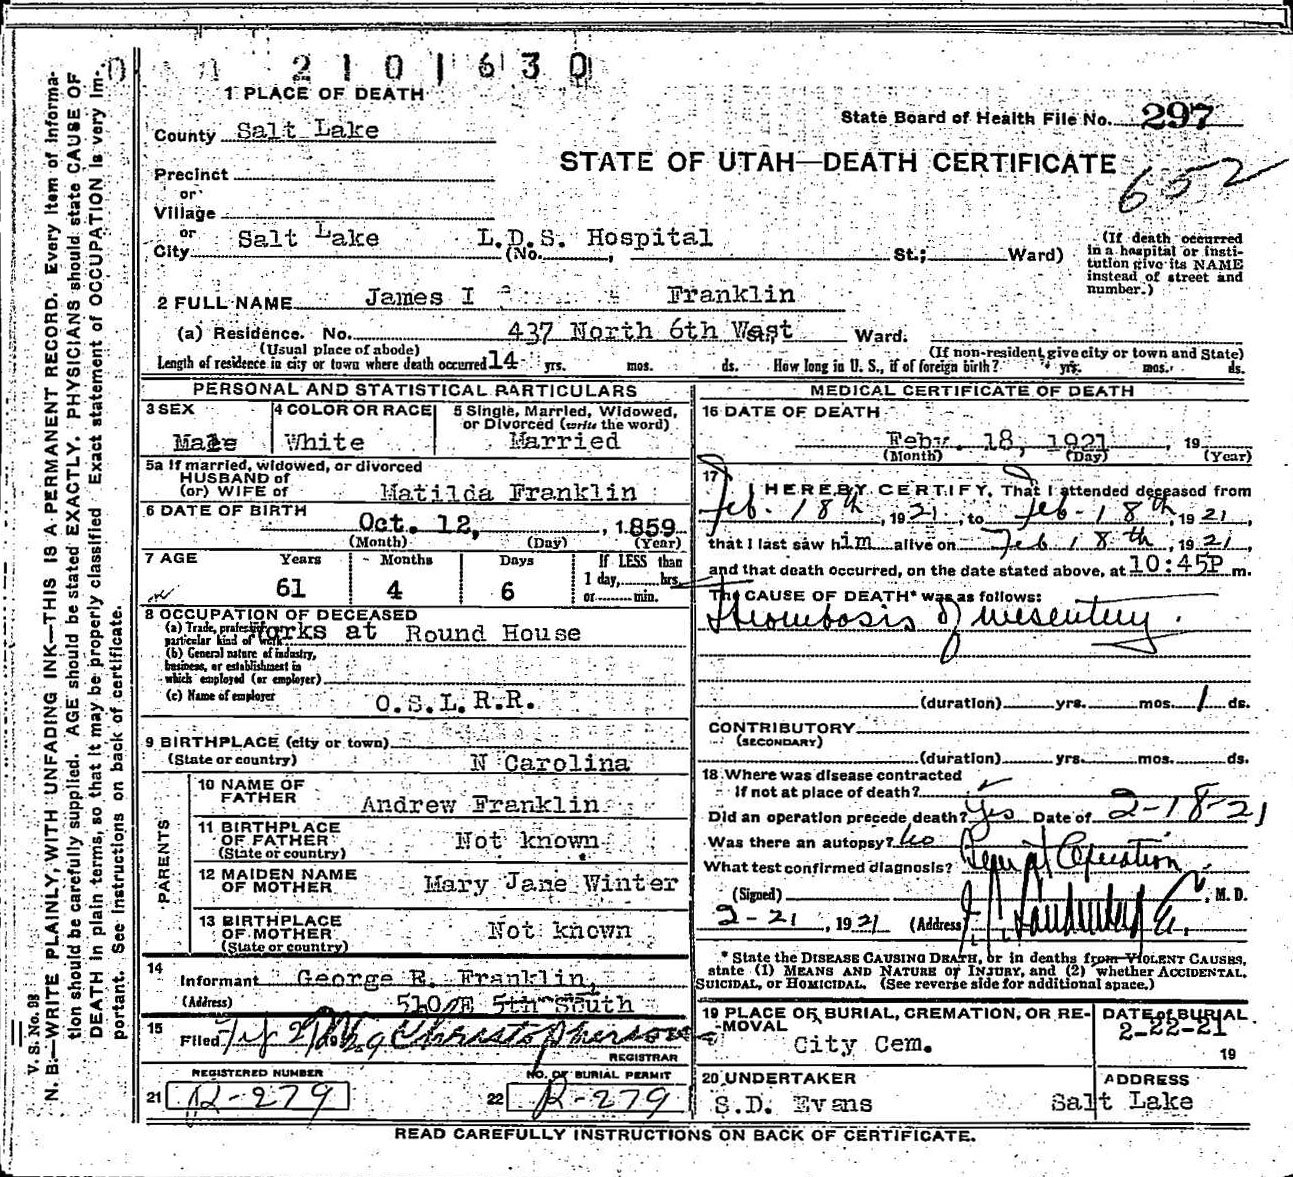 2101630
1 PLACE OF DEATH
State Board of Health File No. 297
County Salt Lake
STATE OF UTAH—DEATH CERTIFICATE
652
Precinct
or
Village
or
City Salt Lake (No. L.D.S. Hospital, St.; Ward)
(If death occurred in a hospital or institution give its NAME instead of street and number.)
2 FULL NAME James I Franklin
(a) Residence. No. 437 North 6th West Ward.
(Usual place of abode) (If non-resident give city or town and State)
Length of residence in city or town where death occurred 14 yrs. mos. ds. How long in U. S., if of foreign birth? yrs. mos. ds.
PERSONAL AND STATISTICAL PARTICULARS
3 SEX 4 COLOR OR RACE 5 Single, Married, Widowed, or Divorced (write the word)
Male White Married
5a If married, widowed, or divorced
HUSBAND of
(or) WIFE of Matilda Franklin
6 DATE OF BIRTH Oct. 12, , 1859
(Month) (Day) (Year)
7 AGE Years Months Days If LESS than
61 4 6 1 day, hrs.
or min.
8 OCCUPATION OF DECEASED
(a) Trade, profession, particular kind of work Works at Round House
(b) General nature of industry,
business, or establishment in
which employed (or employer)
(c) Name of employer O.S.L.R.R.
9 BIRTHPLACE (city or town)
(State or country) N Carolina
PARENTS
10 NAME OF
FATHER Andrew Franklin
11 BIRTHPLACE
OF FATHER Not known
(State or country)
12 MAIDEN NAME
OF MOTHER Mary Jane Winter
13 BIRTHPLACE
OF MOTHER Not known
(State or country)
14
Informant George R. Franklin,
(Address) 510 E 5th South
15
Filed
REGISTRAR
REGISTERED NUMBER NO. OF BURIAL PERMIT
21 R-279 22 R-279
MEDICAL CERTIFICATE OF DEATH
16 DATE OF DEATH
Feby. 18, 1921, 19
(Month) (Day) (Year)
17
I HEREBY CERTIFY, That I attended deceased from
Feb. 18th, 1921, to Feb-18th, 1921,
that I last saw him alive on Feb 18th, 1921,
and that death occurred, on the date stated above, at 10:45P m.
The CAUSE OF DEATH* was as follows:
Thrombosis of mesentery.
(duration) yrs. mos. 1 ds.
CONTRIBUTORY
(SECONDARY)
(duration) yrs. mos. ds.
18 Where was disease contracted
if not at place of death?
Did an operation precede death? Yes Date of 2-18-21
Was there an autopsy? No
What test confirmed diagnosis? Operation
(Signed) , M. D.
2-21, 1921 (Address)
* State the DISEASE CAUSING DEATH, or in deaths from VIOLENT CAUSES,
state (1) MEANS AND NATURE OF INJURY, and (2) whether ACCIDENTAL,
SUICIDAL, or HOMICIDAL. (See reverse side for additional space.)
19 PLACE OF BURIAL, CREMATION, OR RE-
MOVAL
City Cem.
DATE of BURIAL
2-22-21
19
20 UNDERTAKER ADDRESS
S.D. Evans Salt Lake
READ CAREFULLY INSTRUCTIONS ON BACK OF CERTIFICATE.
V. S. No. 98
N. B.—WRITE PLAINLY, WITH UNFADING INK—THIS IS A PERMANENT RECORD. Every item of informa-
tion should be carefully supplied. AGE should be stated EXACTLY. PHYSICIANS should state CAUSE OF
DEATH in plain terms, so that it may be properly classified. Exact statement of OCCUPATION is very im-
portant. See instructions on back of certificate.